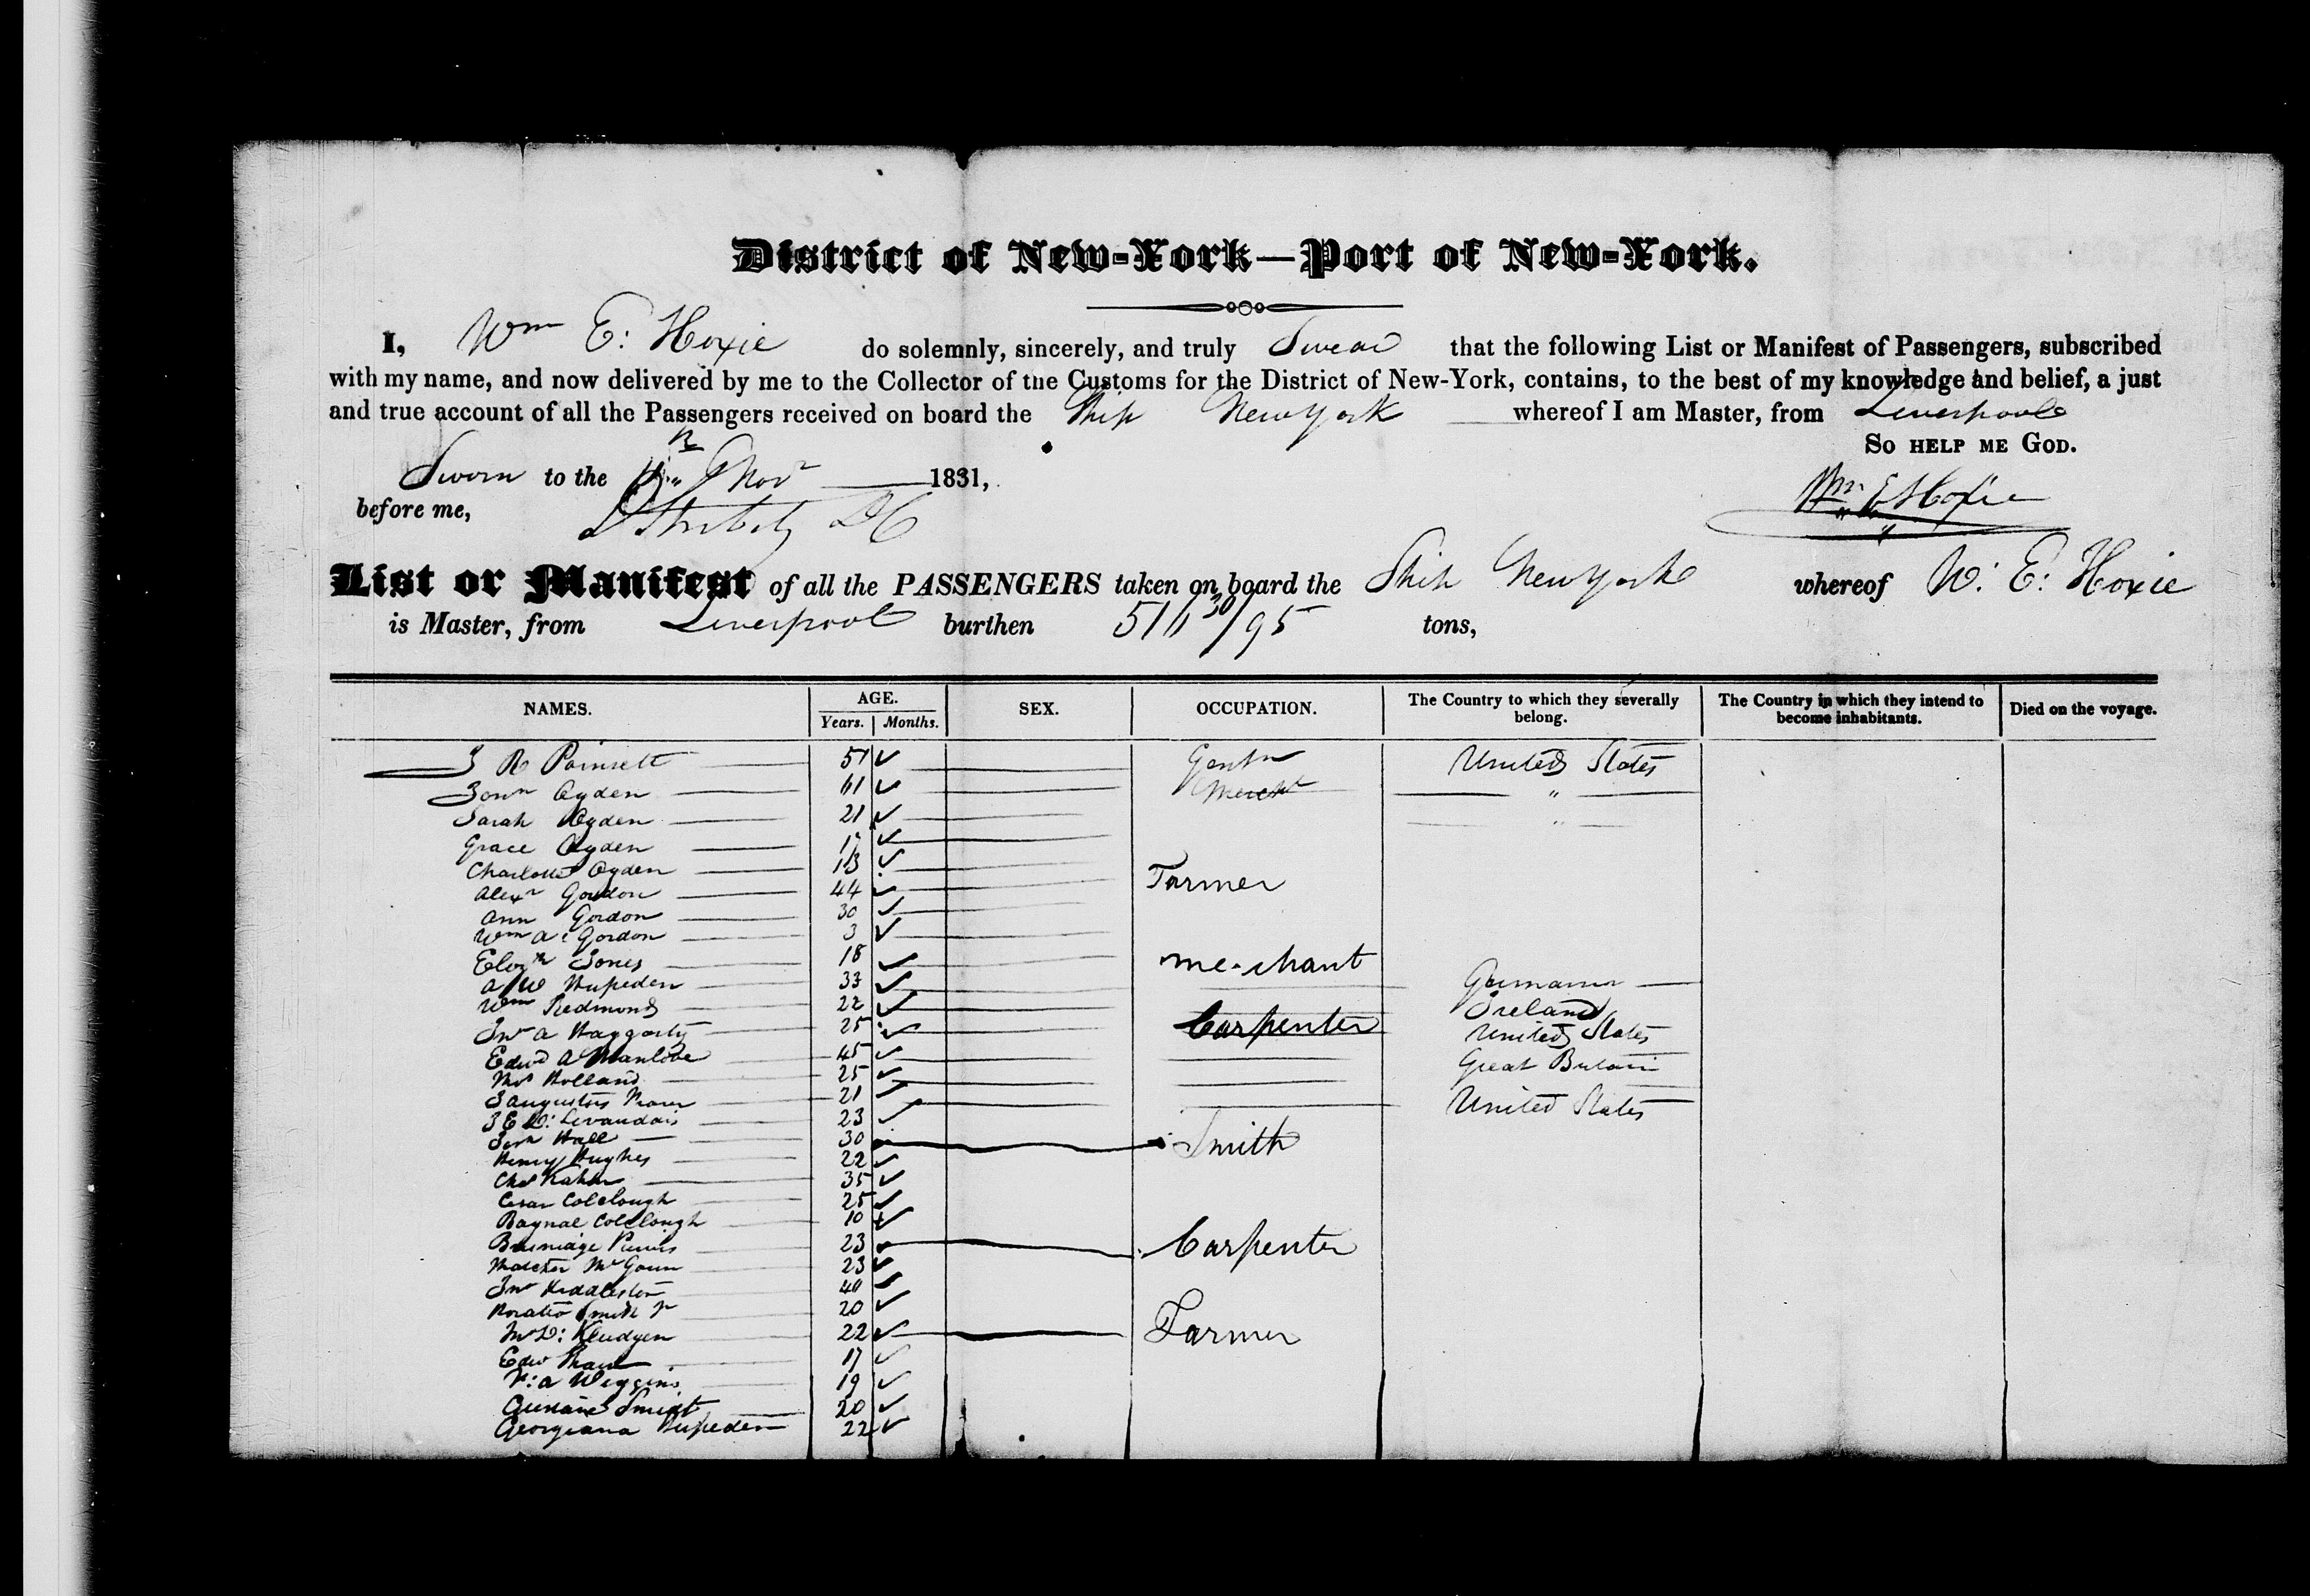 District of New-York—Port of New-York.
I, Wm E: Hoxie do solemnly, sincerely, and truly Swear that the following List or Manifest of Passengers, subscribed
with my name, and now delivered by me to the Collector of the Customs for the District of New-York, contains, to the best of my knowledge and belief, a just
and true account of all the Passengers received on board the Ship New York whereof I am Master, from Liverpool
So help me God.
Sworn to the Novr 1831,
Wm E Hoxie
before me,
List or Manifest of all the PASSENGERS taken on board the Ship New York whereof W: E: Hoxie
is Master, from Liverpool burthen 30/95 tons,
NAMES. AGE. SEX. OCCUPATION. The Country to which they severally belong. The Country in which they intend to become inhabitants. Died on the voyage.
Years. Months.
J R Poinsett 51 Gentn United States
Jonn Ogden 61 Mercht "
Sarah Ogden 21 "
Grace Ogden 17
Charlotte Ogden 13
Alexr Gordon 44 Farmer
Ann Gordon 30
Wm A: Gordon 3
Elizth Jones 18
A W Hupeden 33 merchant Germany
Wm Redmond 22 Ireland
Jno A Haggerty 25 Carpenter United States
Edwd A Manlove 45 Great Britain
Holland 25
J Augustus 21 United States
J E D: Levaudais 23
Hall 30 Smith
Henry Hughes 22
Chs 35
Cesar Colclough 25
Bagnal Colclough 10
23 Carpenter
Mc 23
Jno Huddleston 40
Horatio Smith Jr 20
22 Farmer
Edwd 17
F: A Wiggins 19
Smidt 20
Georgiana Hupeden 22